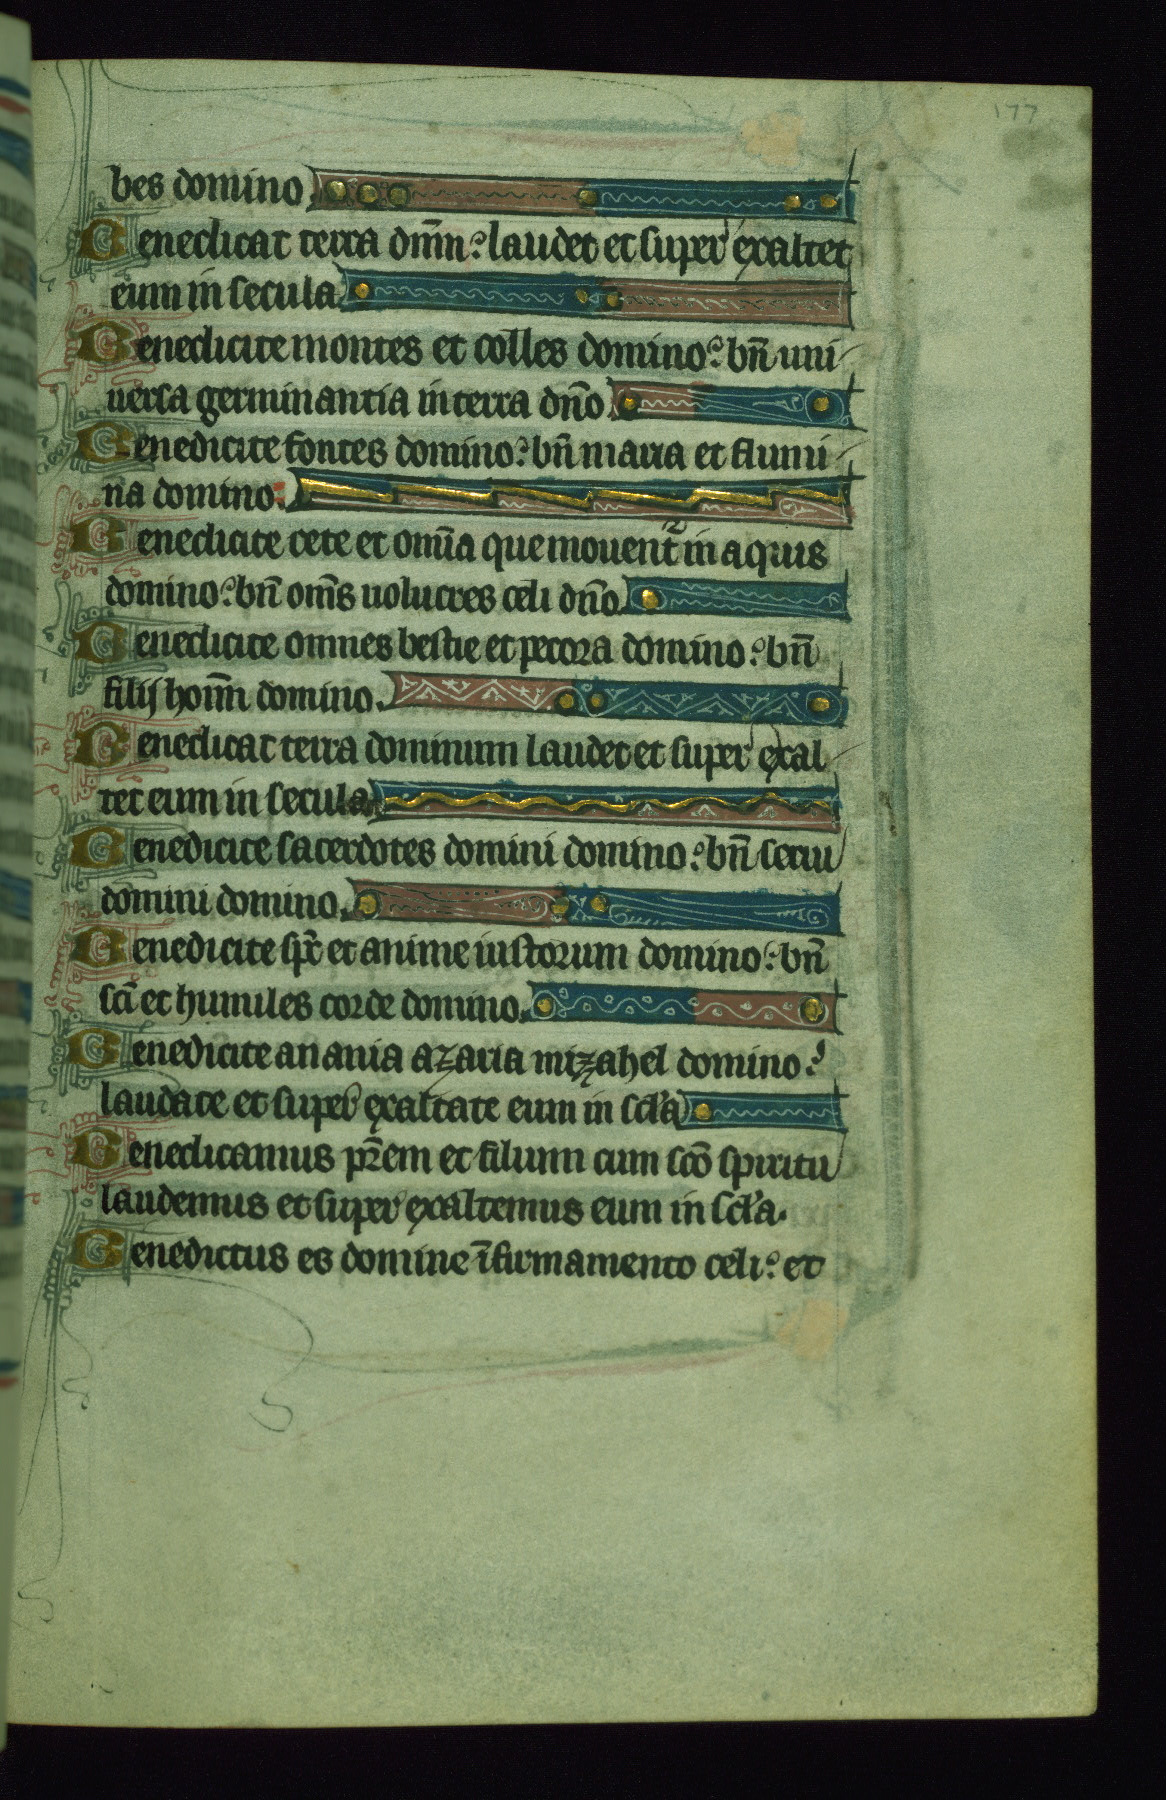 177
bes domino
Benedicat terra dn̄m: laudet et super exaltet
eum in secula
Benedicite montes et colles domino: bn̄ uni
uersa germinantia in terra dn̄o
Benedicite fontes domino: bn̄ maria et flumi
na domino:
Benedicite cete et omīa que mouent᷑ in aquis
domino: bn̄ om̄s uolucres celi dn̄o
Benedicite omnes bestie et pecora domino: bn̄
filij hoīm domino.
Benedicat terra dominum laudet et super exal
tet eum in secula
Benedicite sacerdotes domini domino: bn̄ serui
domini domino.
Benedicite sp̄c et anime iustorum domino: bn̄
sc̄i et humiles corde domino.
Benedicite anania azaria mizahel domino:
laudate et super exaltate eum in scl̓a
Benedicamus pr̄em et filium cum sc̄o spiritu
laudemus et super exaltemus eum in scl̓a.
Benedictus es domine ī firmamento celi: et